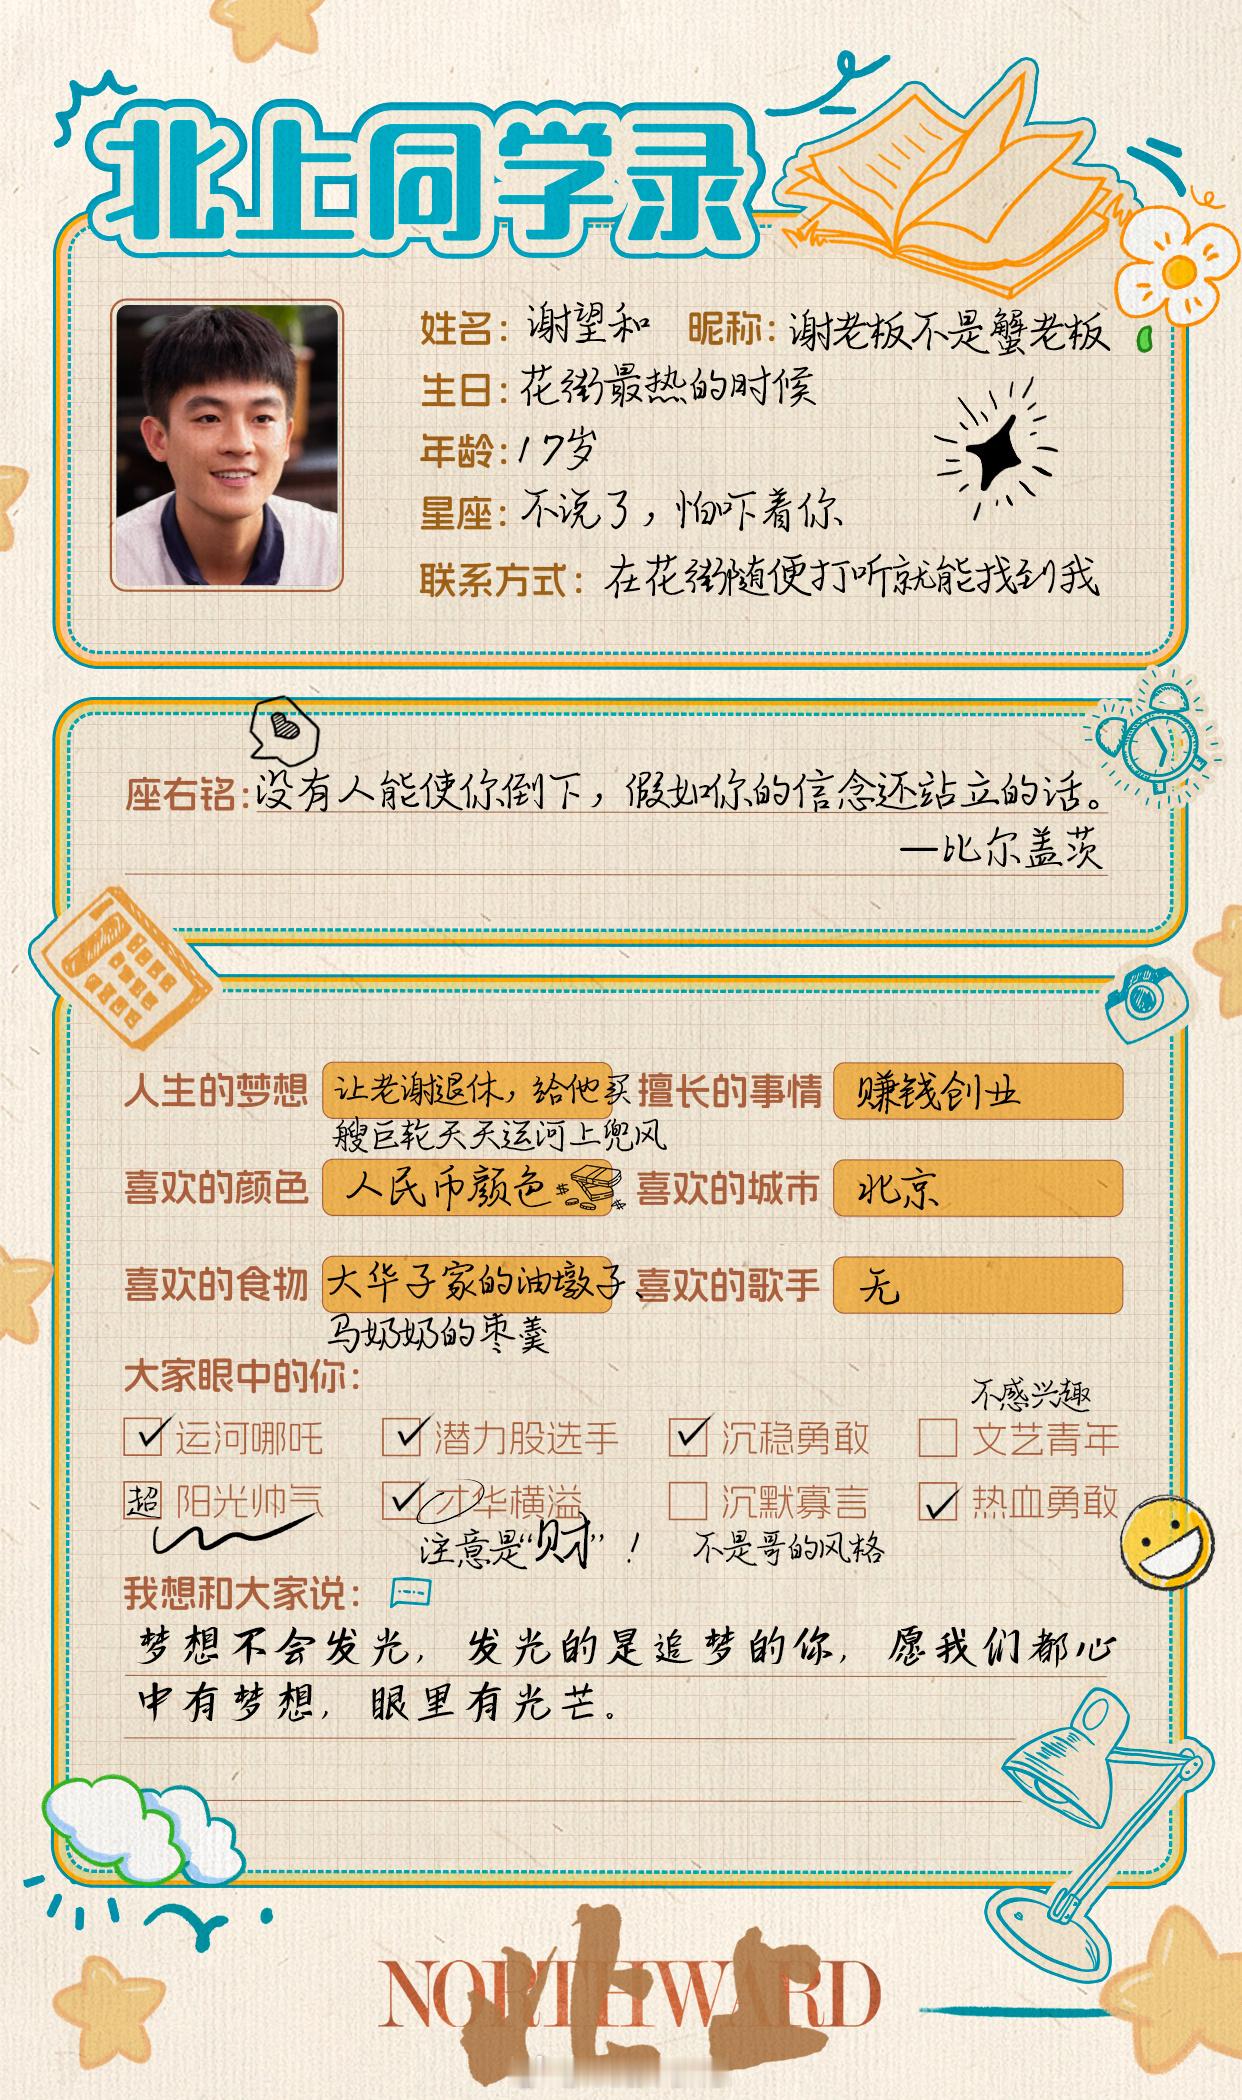 北上同学录
姓名：谢望和 昵称：谢老板不是蟹老板
生日：花街最热的时候
年龄：17岁
星座：不说了，怕吓着你
联系方式：在花街随便打听就能找到我
座右铭：没有人能使你倒下，假如你的信念还站立的话。
—比尔盖茨
人生的梦想 让老谢退休，给他买 擅长的事情 赚钱创业
艘巨轮天天运河上兜风
喜欢的颜色 人民币颜色 喜欢的城市 北京
喜欢的食物 大华子家的油墩子、喜欢的歌手 无
马奶奶的枣羹
大家眼中的你：
不感兴趣
运河哪吒 潜力股选手 沉稳勇敢 文艺青年
超 阳光帅气 才华横溢 沉默寡言 热血勇敢
注意是“财”！ 不是哥的风格
我想和大家说：
梦想不会发光，发光的是追梦的你，愿我们都心
中有梦想，眼里有光芒。
NORTHWARD
北上